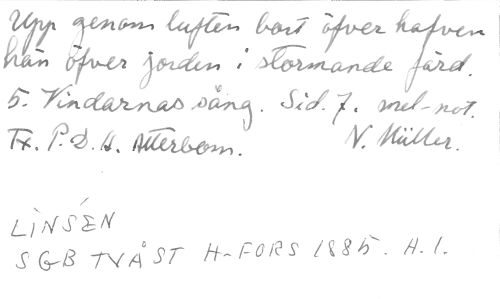 Upp genom luften bort öfver hafven
hän öfver jorden i stormande färd.
5. Vindarnas sång. Sid. 7. mel-not.
Tx. P.D.A. Atterbom. N. Müller.
LINSÉN
SGB TVÅST H-FORS 1885. H.1.